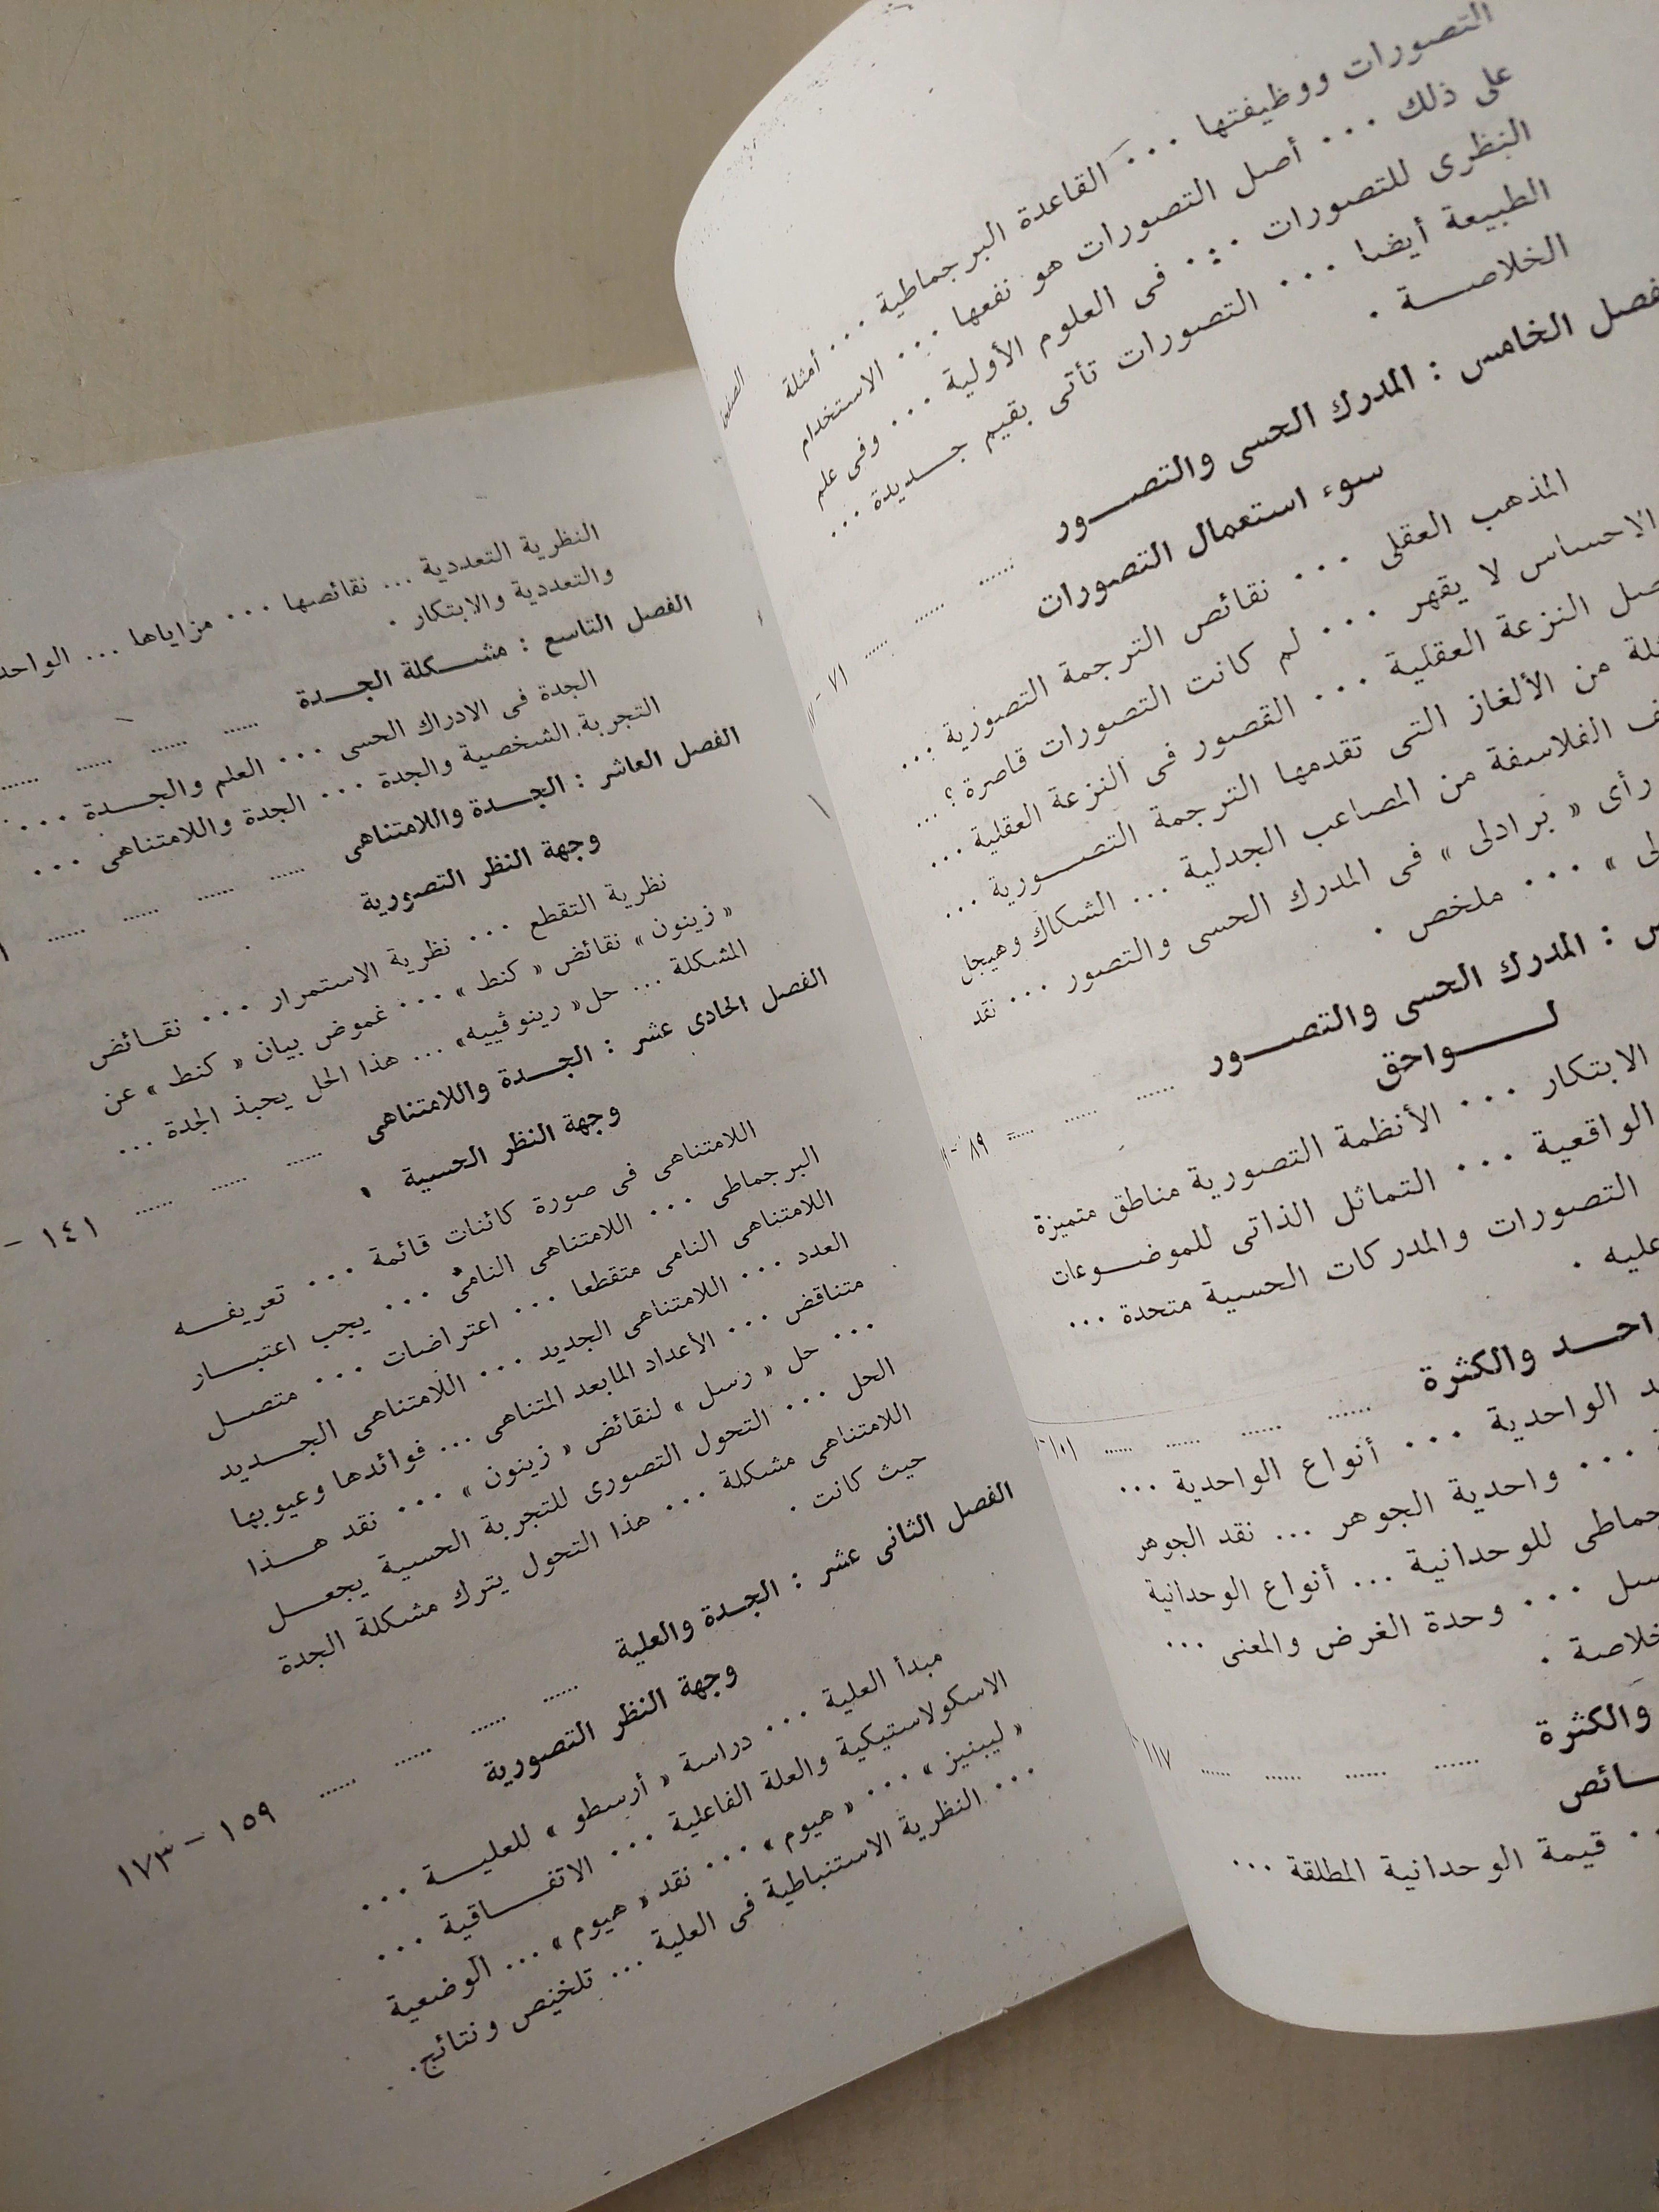 الصفحة
التصورات ووظيفتها ... القاعدة البرجماطية ... أمثلة
على ذلك ... أصل التصورات هو نفعها ... الاستخدام
النظرى للتصورات ... فى العلوم الأولية ... وفى علم
الطبيعة أيضا ... التصورات تأتى بقيم جــديدة ...
الخلاصــة .
فصل الخامس : المدرك الحسى والتصــور ...... ...... ...... ٧١ -
سوء استعمال التصورات
المذهب العقلى ... نقائص الترجمة التصورية ...
الاحساس لا يقهر ... لم كانت التصورات قاصرة ؟ ...
النزعة العقلية ... القصور فى النزعة العقلية ...
من الألغاز التى تقدمها الترجمة التصــورية ...
الفلاسفة من المصاعب الجدلية ... الشكاك وهيجل
رأى « برادلى » فى المدرك الحسى والتصور ... نقد
» ... ملخص .
: المدرك الحسى والتصــور ...... ...... ...... ٨٩ -
لــــواحق
الابتكار ... الأنظمة التصورية مناطق متميزة
الواقعية ... التماثل الذاتى للموضــوعات
التصورات والمدركات الحسية متحدة ...
عليه .
والكثرة ...... ...... ...... ...... ١٠١ -
الواحدية ... أنواع الواحدية ...
... واحدية الجوهر ... نقد الجوهر
للوحدانية ... أنواع الوحدانية
... وحدة الغرض والمعنى ...
.
والكثرة ...... ...... ...... ...... ١١٧ -
قيمة الوحدانية المطلقة ...
النظرية التعددية ... نقائصها ... مزاياها ...
والتعددية والابتكار .
الفصل التاسع : مشــكلة الجــدة ...... ...... ...... ......
الجدة فى الادراك الحسى ... العلم والجــدة ...
التجربة الشخصية والجدة ... الجدة واللامتناهى ...
الفصل العاشر : الجــدة واللامتناهى ...... ...... ...... ......
وجهة النظر التصورية
نظرية التقطع ... نظرية الاستمرار ... نقــائض
« زينون » نقائض « كنط » ... غموض بيان « كنط » عن
المشكلة ... حل « رينوڤييه » ... هذا الحل يحبذ الجدة ...
الفصل الحادى عشر : الجــدة واللامتناهى ...... ...... ...... ١٤١ -
وجهة النظر الحسية .
اللامتناهى فى صورة كائنات قائمة ... تعريفــه
البرجماطى ... اللامتناهى النامى ... يجب اعتبــار
اللامتناهى النامى متقطعا ... اعتراضات ... متصــل
العدد ... اللامتناهى الجديد ... اللامتناهى الجــديد
متناقض ... الأعداد المابعد المتناهى ... فوائدها وعيوبها
... حل « رسل » لنقائض « زينون » ... نقد هــذا
الحل ... التحول التصورى للتجربة الحسية يجعــل
اللامتناهى مشكلة ... هذا التحول يترك مشكلة الجدة
حيث كانت .
الفصل الثانى عشر : الجــدة والعلية ...... ...... ...... ...... ١٥٩ - ١٧٣
وجهة النظر التصورية
مبدأ العلية ... دراسة « أرسطو » للعليــة ...
الاسكولاستيكية والعلة الفاعلية ... الاتفــاقية ...
« ليبنيز » ... « هيوم » ... نقد « هيوم » ... الوضعية
... النظرية الاستنباطية فى العلية ... تلخيص ونتائج .